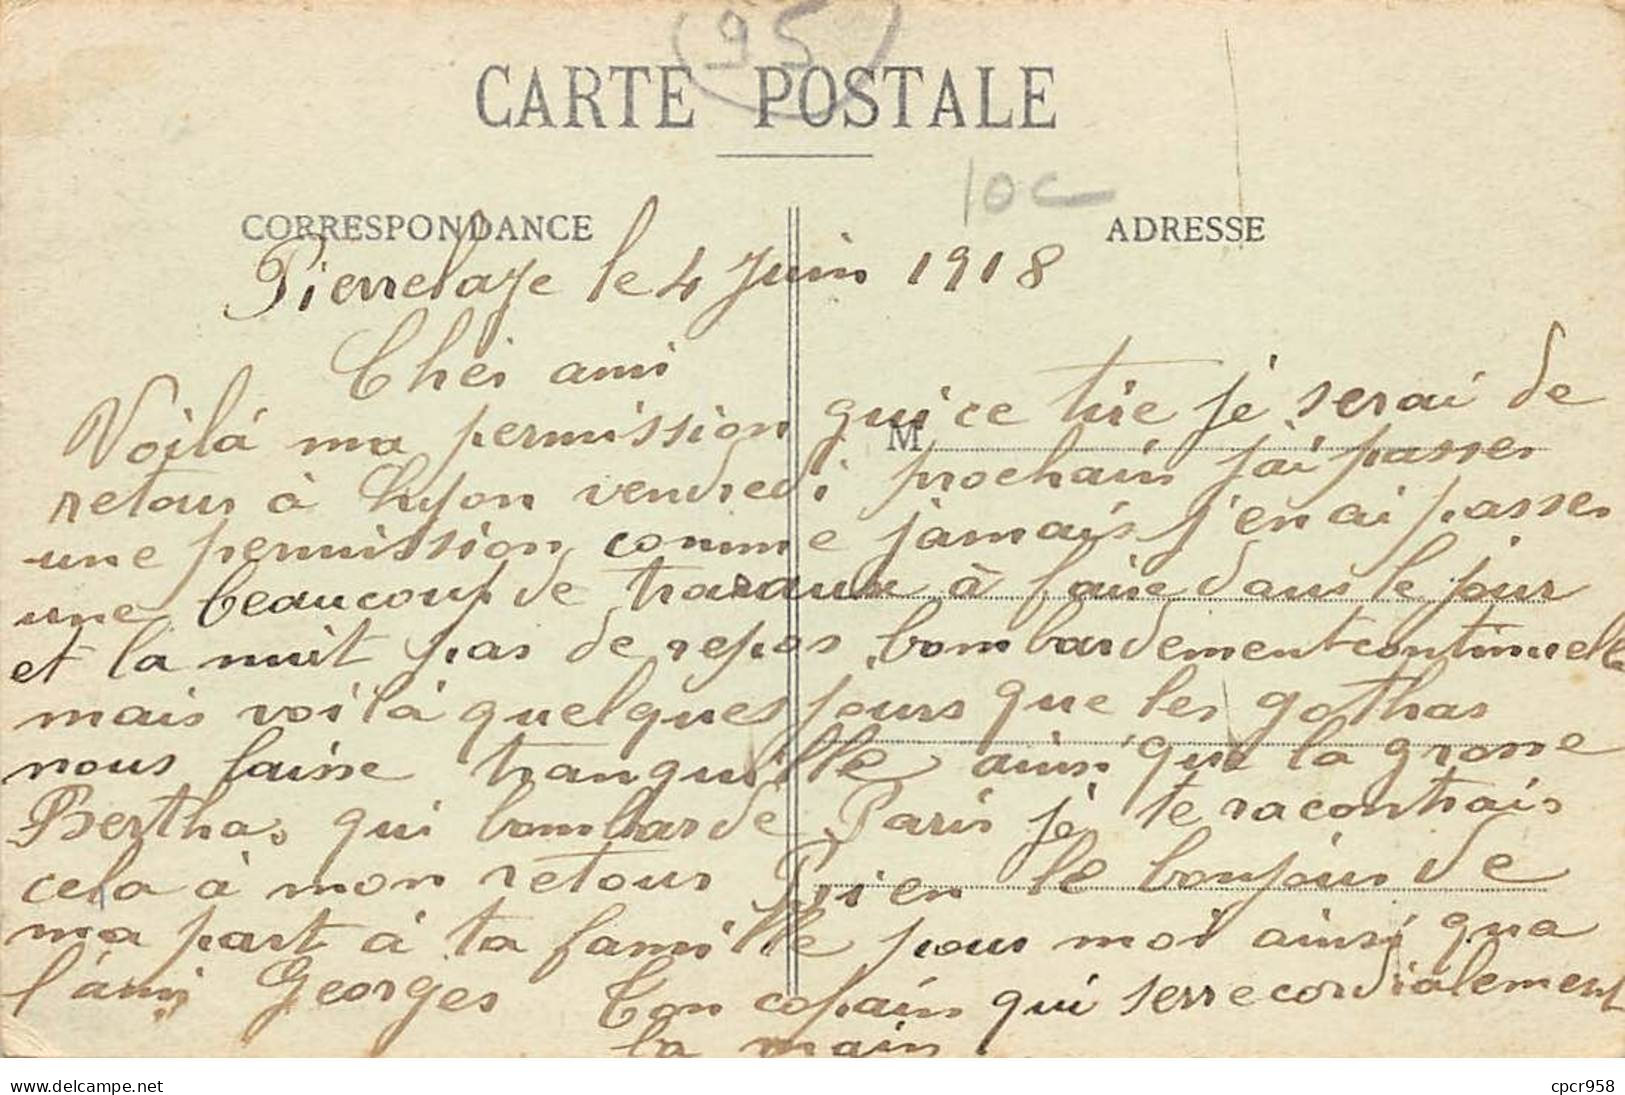 (95)
CARTE POSTALE
10c
CORRESPONDANCE
ADRESSE
Pierrelaye le 4 Juin 1918
Cher ami
Voilà ma permission qui ce tire je serai de
M
retour à Lyon vendredi prochain j'ai passer
une permission comme jamais j'en ai passer
une beaucoup de travaux à faire dans le jour
et la nuit pas de repos bombardement continuelle
mais voilà quelques jours que les gothas
nous laisse tranquille ainsi que la grosse
Berthas qui bombarde Paris je te racontrais
cela à mon retour Rien le bonjour de
ma part à ta famille pour moi ainsi qua
l'ami Georges Ton copain qui serre cordialement
la main
delcampe.net
cpcr958